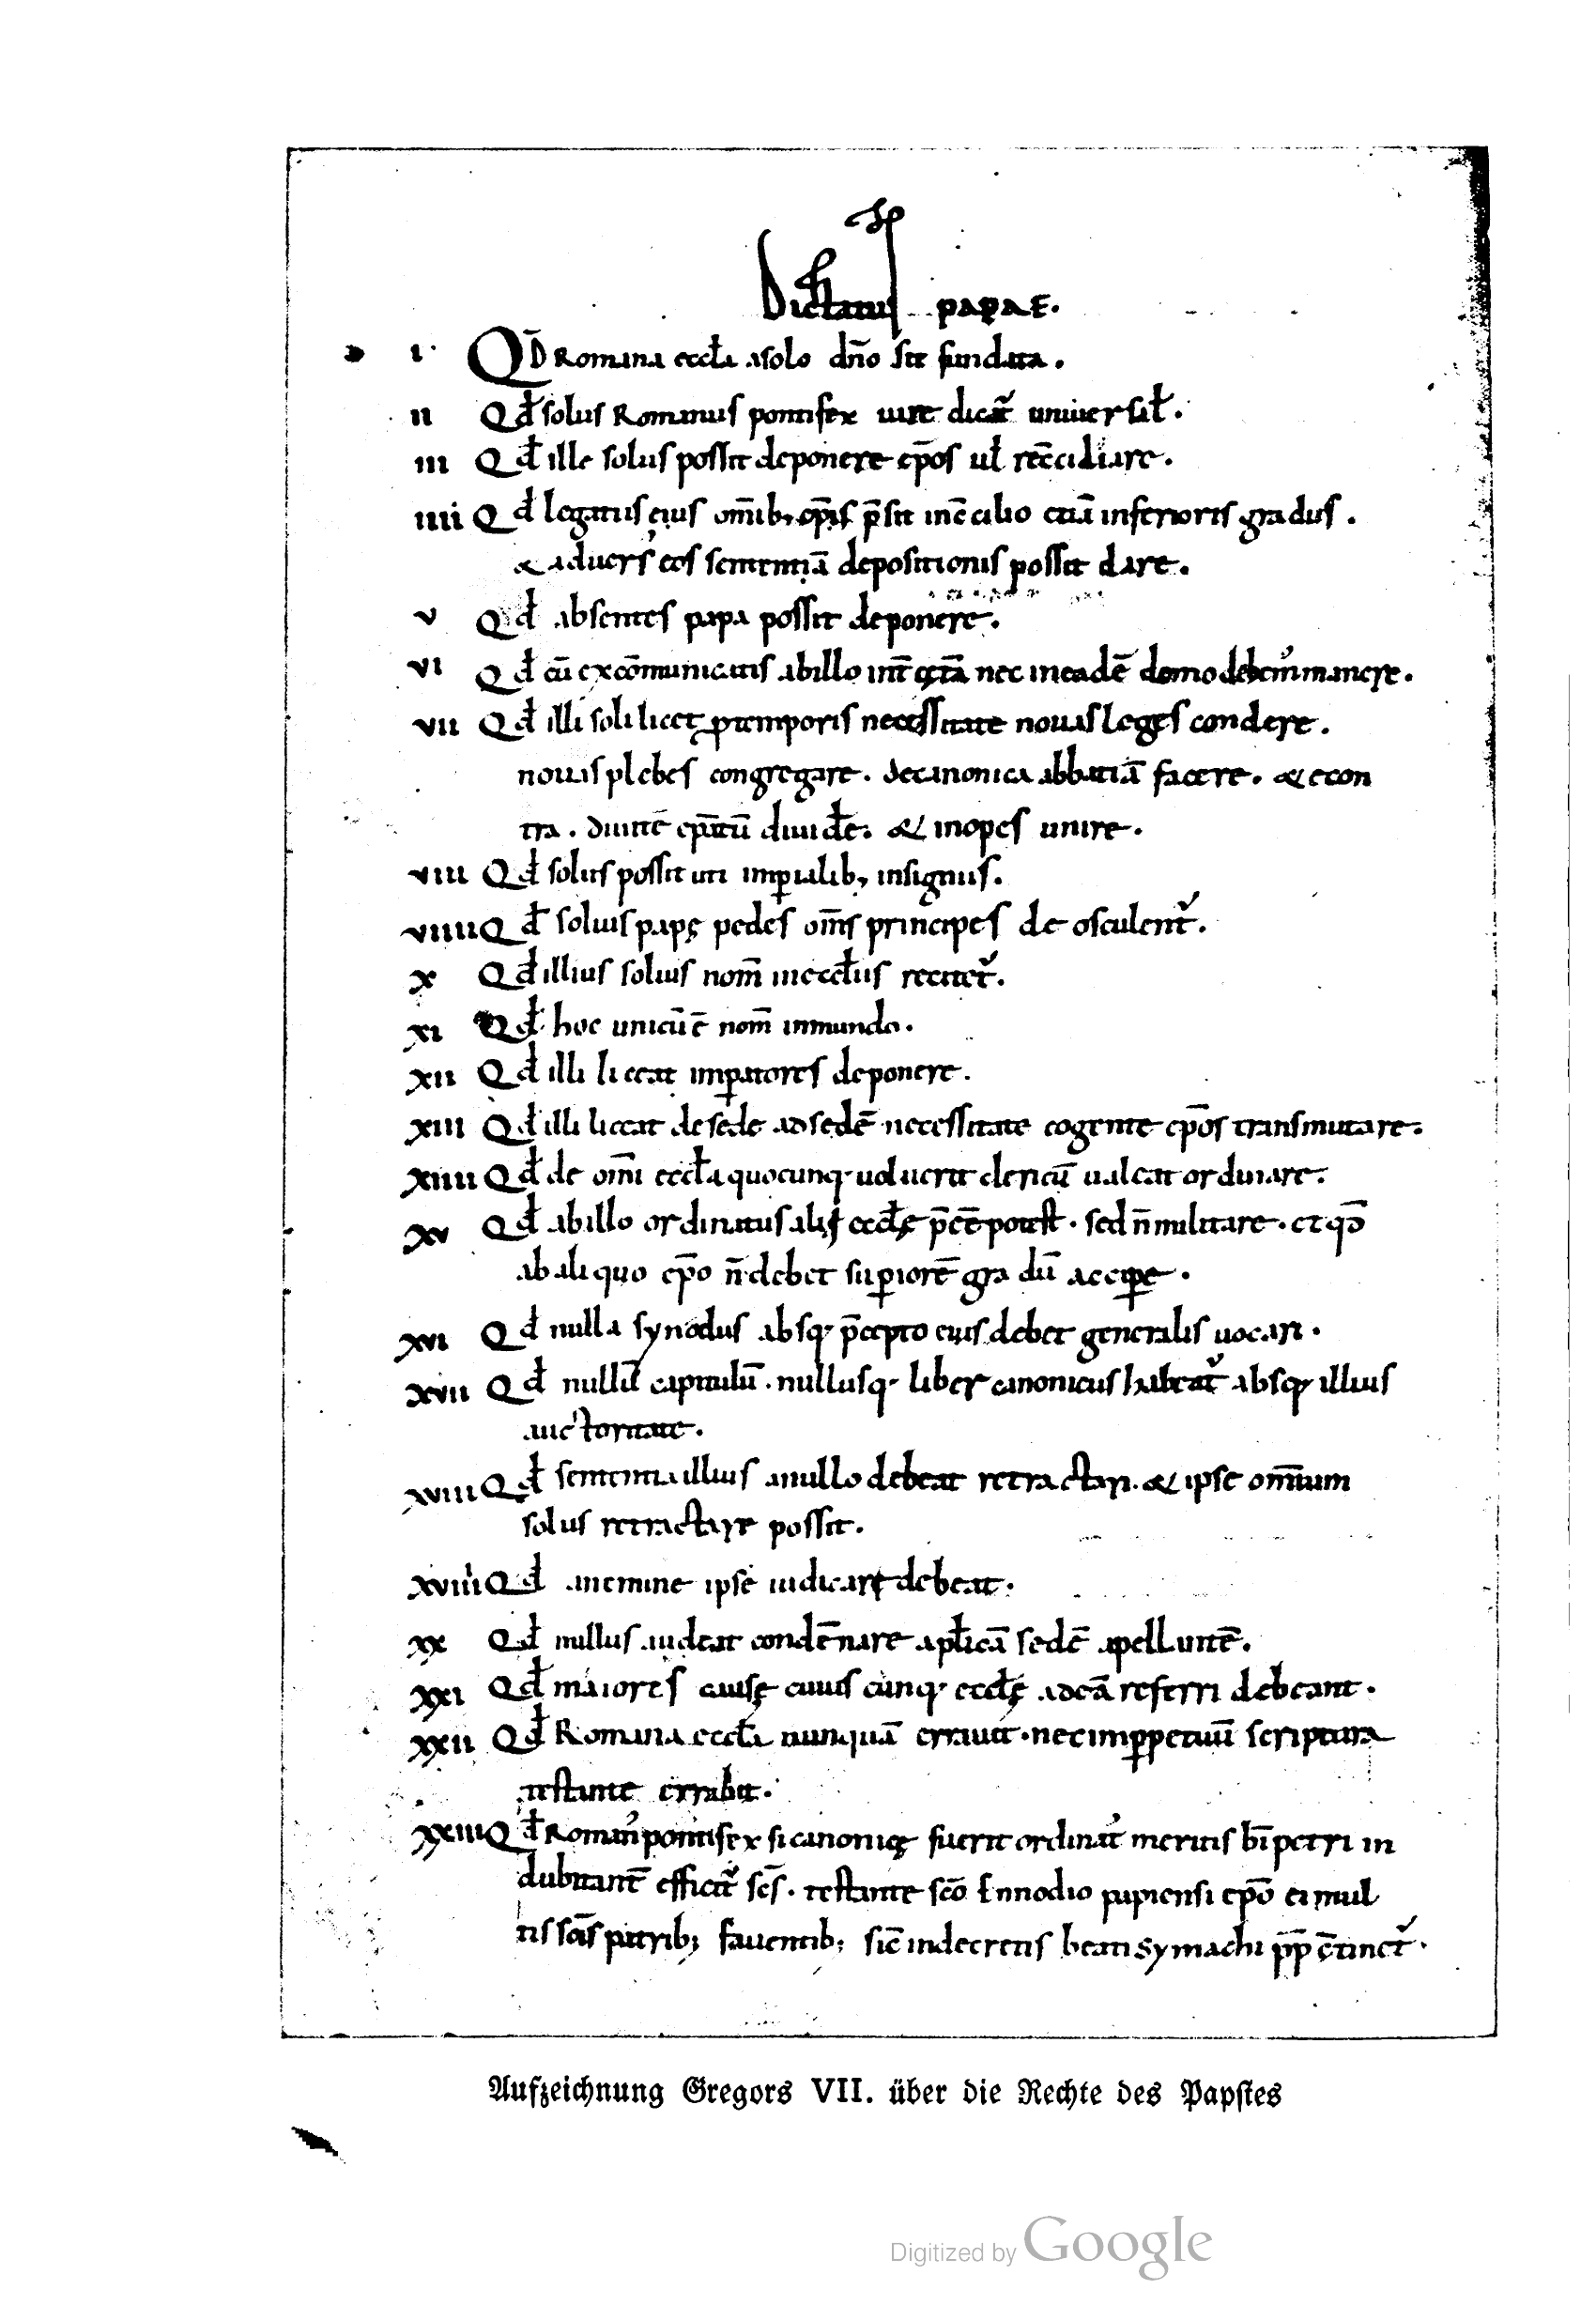 Dictatus papae.
I. Qd̄ Romana eccƚa a solo dn̄o sit fundata.
II Qđ solus Romanus pontifex iure dicat᷒ uniuersaƚ.
III Qđ ille solus possit deponere ep̄os uƚ recc̄ciliare.
IIII Qđ legatus eius om̄ib; ep̄is p̄sit in cc̄cilio etiā inferioris gradus.
& aduers᾽ eos sententiā depositionis possit dare.
V Qđ absentes papa possit deponere.
VI Qđ cū excōmunicatis ab illo int̄ cęt̄a nec in eadē domo debem᾽ manere.
VII Qđ illi soli licet ꝓ temporis necessitate nouas leges condere.
nouas plebes congregare. de canonica abbatiā facere. & econ
tra. diuitē ep̄atū diuiđe. & inopes unire.
VIII Qđ solus possit uti imꝑialib; insigniis.
VIIII Qđ solius papę pedes om̄s principes deosculent᷒.
X Qđ illius solius nom̄ in eccƚiis recitet᷒.
XI Qđ hoc unicū ē nom̄ in mundo.
XII Qđ illi liceat imꝑatores deponere.
XIII Qđ illi liceat de sede ad sedē necessitate cogente ep̄os transmutare.
XIIII Qđ de om̄i eccƚa quocunq; uoluerit clericū ualeat ordinare.
XV Qđ ab illo ordinatus alii eccƚę p̄eē potest. sed n̄ militare. et qđ
ab aliquo ep̄o n̄ debet suꝑiorē gradū acciꝑe.
XVI Qđ nulla synodus absq; p̄cepto eius debet generalis uocari.
XVII Qđ nullū capitulū. nullusq; liber canonicus habeat᷒ absq; illius
auctoritate.
XVIII Qđ sententia illius a nullo debeat retractari. & ipse om̄ium
solus retractare possit.
XVIIII Qđ a nemine ipse iudicare debeat.
XX Qđ nullus audeat condēnare apƚicā sedē apellantē.
XXI Qđ maiores causę cuiuscunq; eccƚę ad eā referri debeant.
XXII Qđ Romana eccƚa nunquā errauit. nec imꝑpetuū scriptura
testante errabit.
XXIII Qđ Roman᾽ pontifex si canonicę fuerit ordinat᾽ meritis b̄i petri in
dubitant̄ efficit᷒ sc̄s. testante sc̄o Ennodio papiensi ep̄o ei mul
tis sc̄is patrib; fauentib; sic̄ in decretis beati Symachi pp̄ c̄tinet᷒.
Aufzeichnung Gregors VII. über die Rechte des Papstes
Digitized by Google